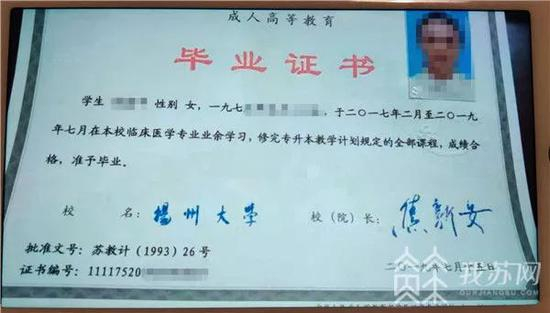 成人高等教育
毕业证书
学生 性别 女，一九七 ，于二〇一七年二月至二〇一九
年七月在本校临床医学专业业余学习，修完专升本教学计划规定的全部课程，成绩合
格，准予毕业。
校 名：扬州大学 校（院）长：焦新安
批准文号：苏教计（1993）26号
证书编号：11117520
二〇一九年七月 日
我苏网
OURJIANGSU.COM